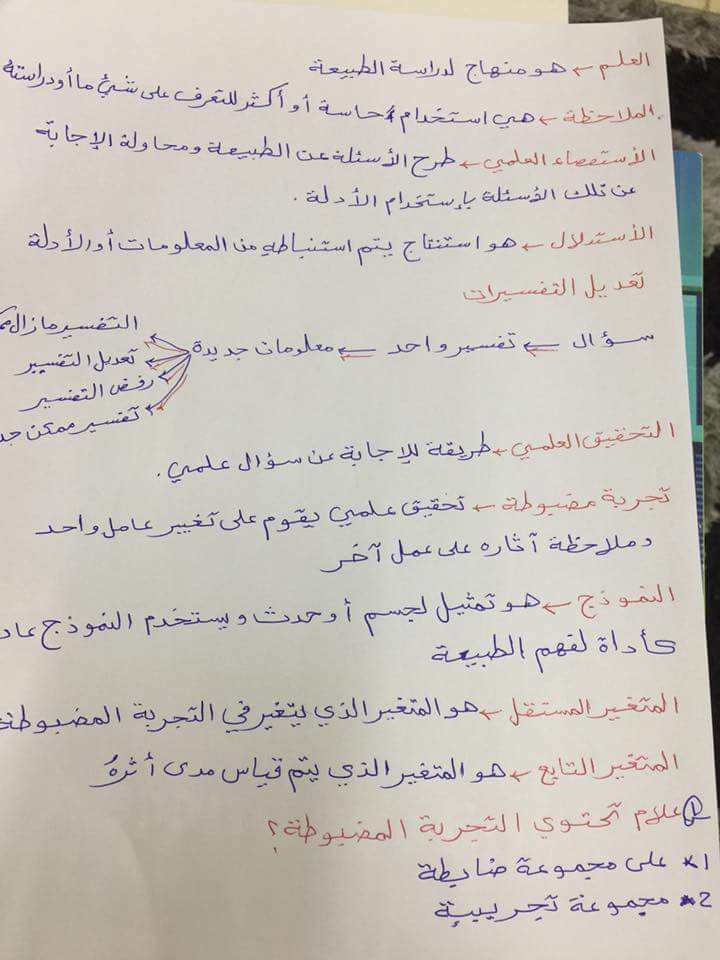 العلم ← هو منهاج لدراسة الطبيعة
الملاحظة ← هي استخدام حاسة أو أكثر للتعرف على شيء ما أو دراسته
الأستقصاء العلمي ← طرح الأسئلة عن الطبيعة ومحاولة الإجابة
عن تلك الأسئلة بإستخدام الأدلة .
الأستدلال ← هو استنتاج يتم استنباطه من المعلومات أو الأدلة
تعديل التفسيرات
سؤال ← تفسير واحد ← معلومات جديدة
التفسير مازال
تعديل التفسير
رفض التفسير
تفسير ممكن
التحقيق العلمي ← طريقة للإجابة عن سؤال علمي .
تجربة مضبوطة ← تحقيق علمي يقوم على تغيير عامل واحد
و ملاحظة آثاره على عمل آخر
النموذج ← هو تمثيل لجسم أو حدث ويستخدم النموذج
كأداة لفهم الطبيعة
المتغير المستقل ← هو المتغير الذي يتغير في التجربة المضبوطة
المتغير التابع ← هو المتغير الذي يتم قياس مدى أثرهُ
علام تحتوي التجربة المضبوطة؟
1* على مجموعة ضابطة
2* مجموعة تجريبية